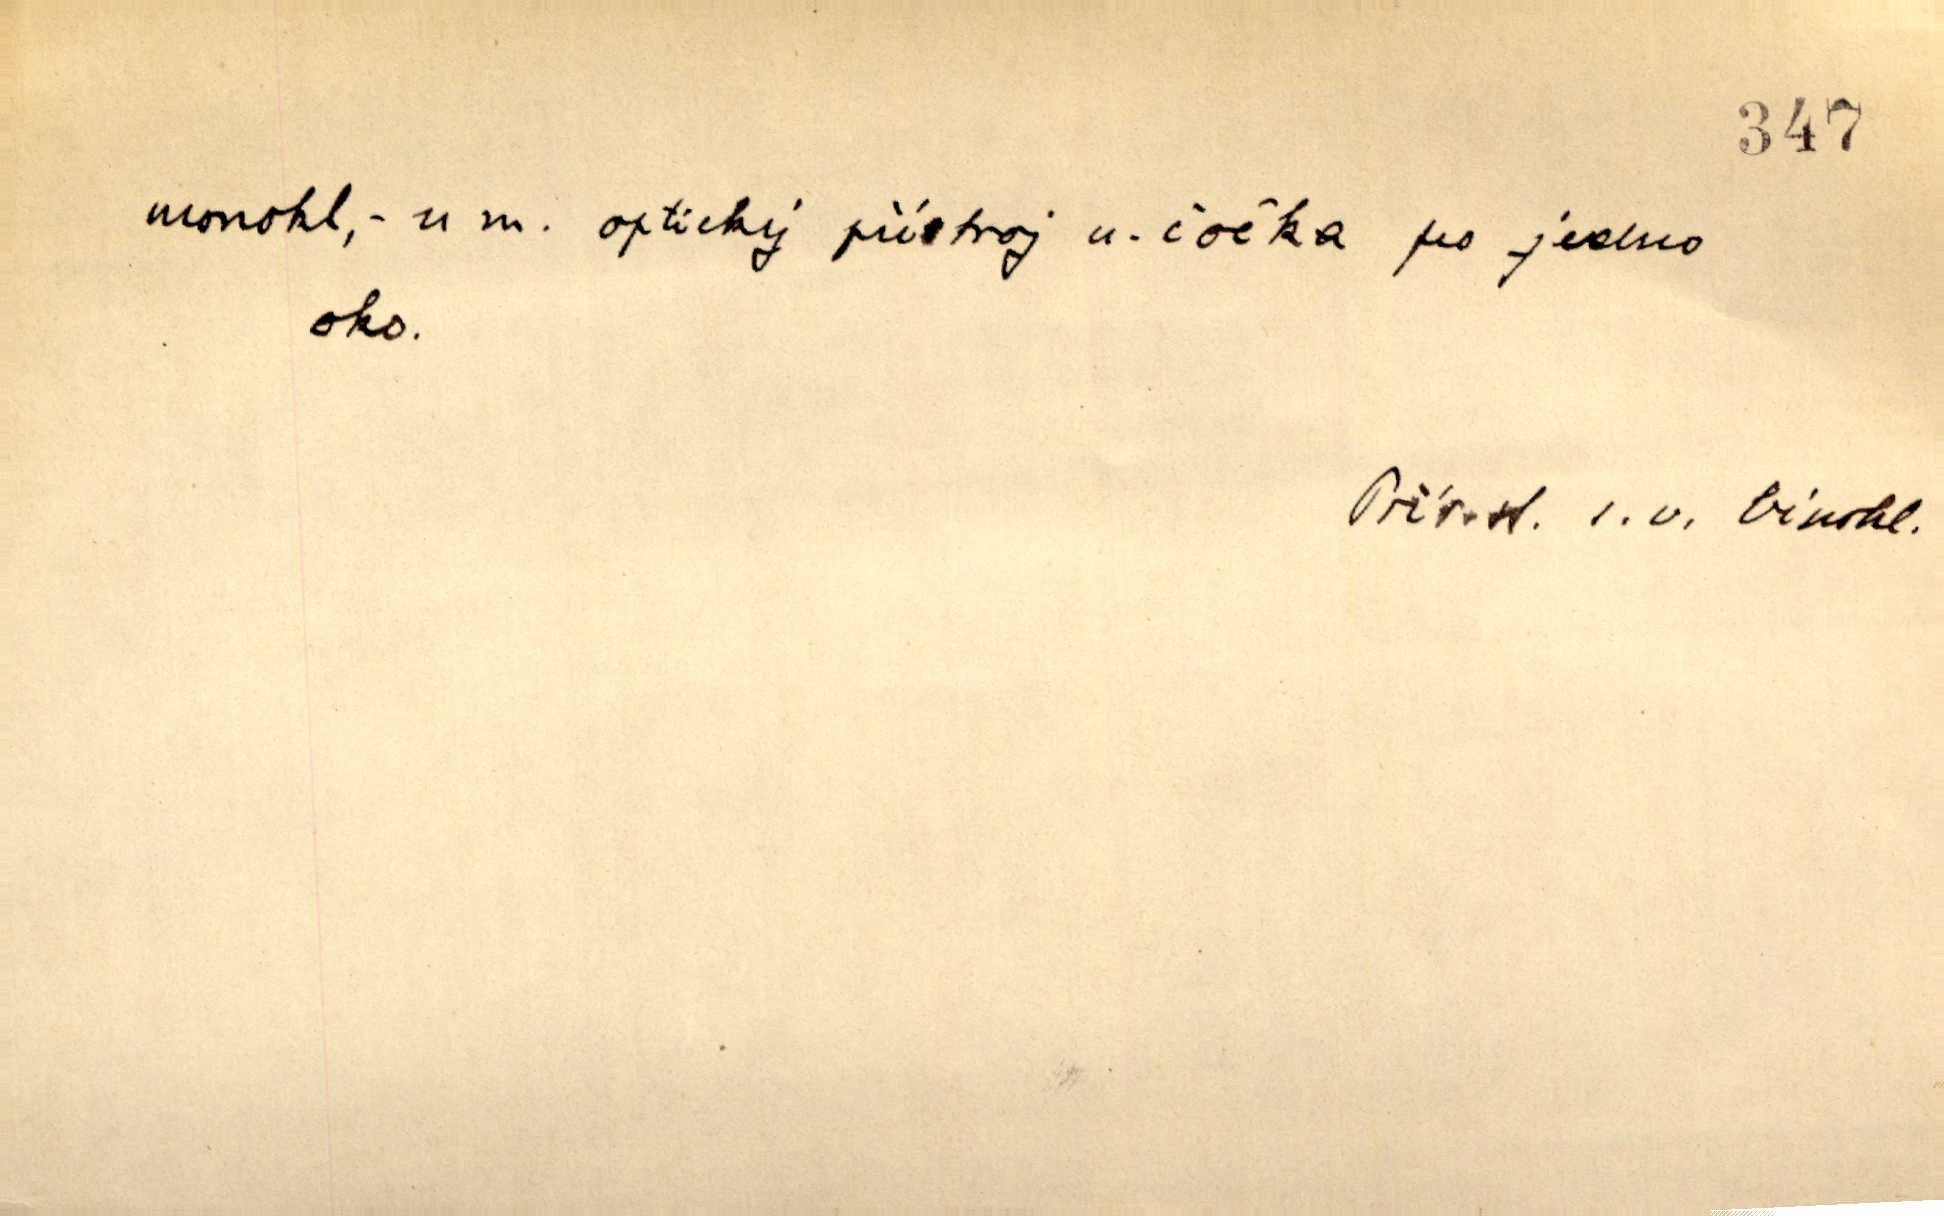 347
monokl, - u m. optický přístroj n. čočka pro jedno
oko.
Přír. sl. s. v. binokl.